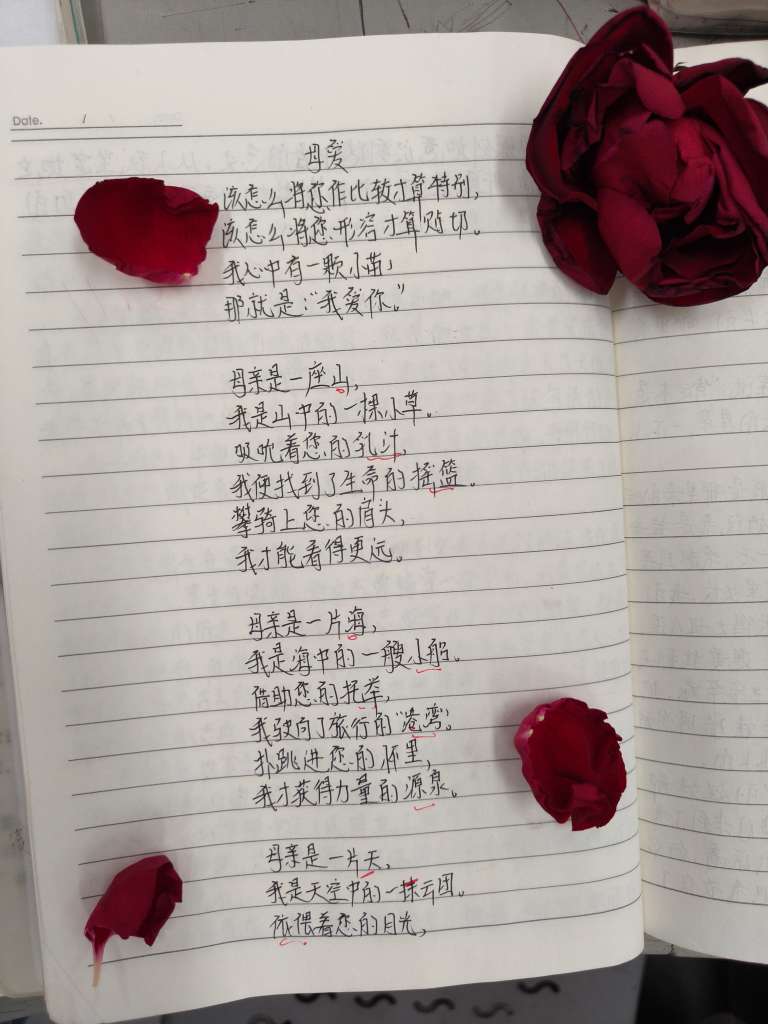 Date. /
母爱
该怎么将您作比较才算特别,
该怎么将您形容才算贴切。
我心中有一颗小苗,
那就是:"我爱你。"
母亲是一座山,
我是山中的一棵小草。
吸吮着您的乳汁,
我便找到了生命的摇篮。
攀骑上您的肩头,
我才能看得更远。
母亲是一片海,
我是海中的一艘小船。
借助您的托举,
我驶向了旅行的"港湾"。
扑跳进您的怀里,
我才获得力量的源泉。
母亲是一片天,
我是天空中的一抹云团。
依偎着您的月光,